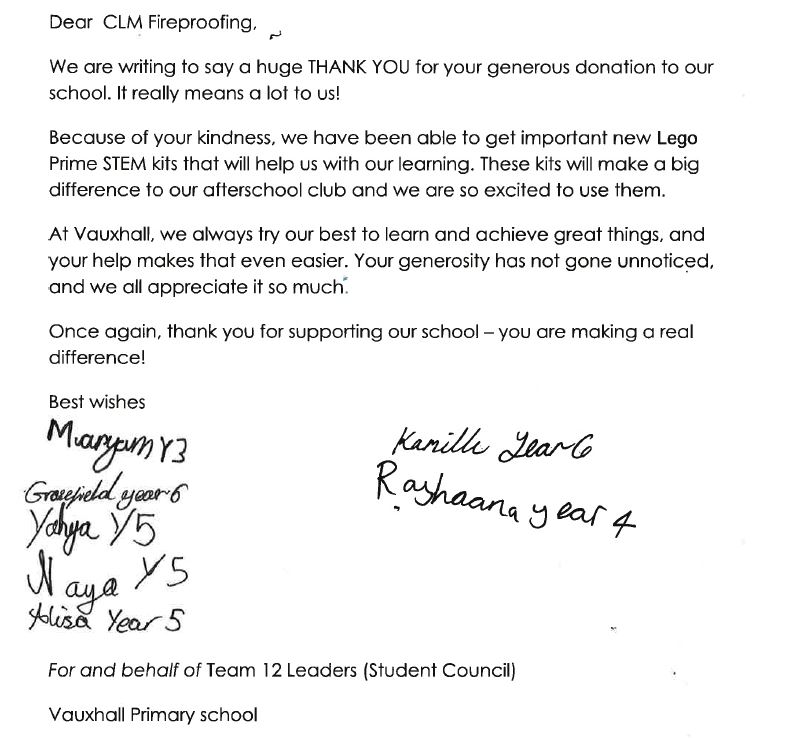 Dear CLM Fireproofing,
We are writing to say a huge THANK YOU for your generous donation to our
school. It really means a lot to us!
Because of your kindness, we have been able to get important new Lego
Prime STEM kits that will help us with our learning. These kits will make a big
difference to our afterschool club and we are so excited to use them.
At Vauxhall, we always try our best to learn and achieve great things, and
your help makes that even easier. Your generosity has not gone unnoticed,
and we all appreciate it so much.
Once again, thank you for supporting our school – you are making a real
difference!
Best wishes
Maryam Y3
Kamille Year 6
Gracefield year 6
Rayhaana year 4
Yahya Y5
Naya Y5
Alisa Year 5
For and behalf of Team 12 Leaders (Student Council)
Vauxhall Primary school